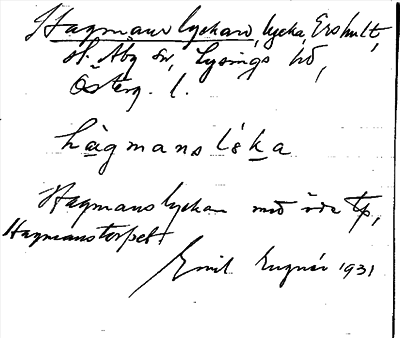 Hagmanslyckan, lycka, Ershult,
V. Aby sn, Lysings hd,
Österg. l.
hàgmanslẹka
Hagmanslyckan med öde tp,
Hagmanstorpet
Emil 1931